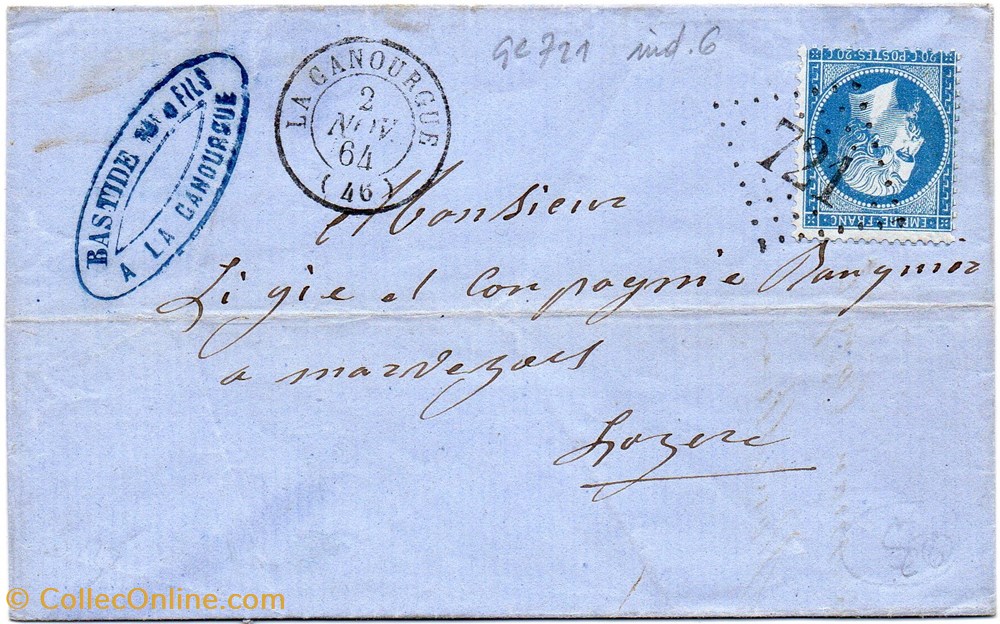 BASTIDE FILS
A LA CANOURGUE
LA CANOURGUE
2
NOV.
64
(46)
GC 721 ind. 6
20 C. POSTES 20 C.
EMPIRE FRANC
721
Monsieur
Ligie et Conpagnie Banquier
a marvezols
Lozere
© CollecOnline.com